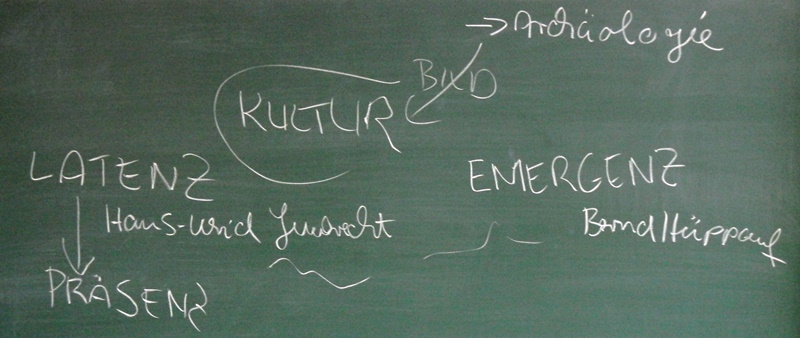 → Archäologie
BILD
KULTUR
LATENZ
EMERGENZ
Hans-Ulrich Gumbrecht
Bernd Hüppauf
PRÄSENZ